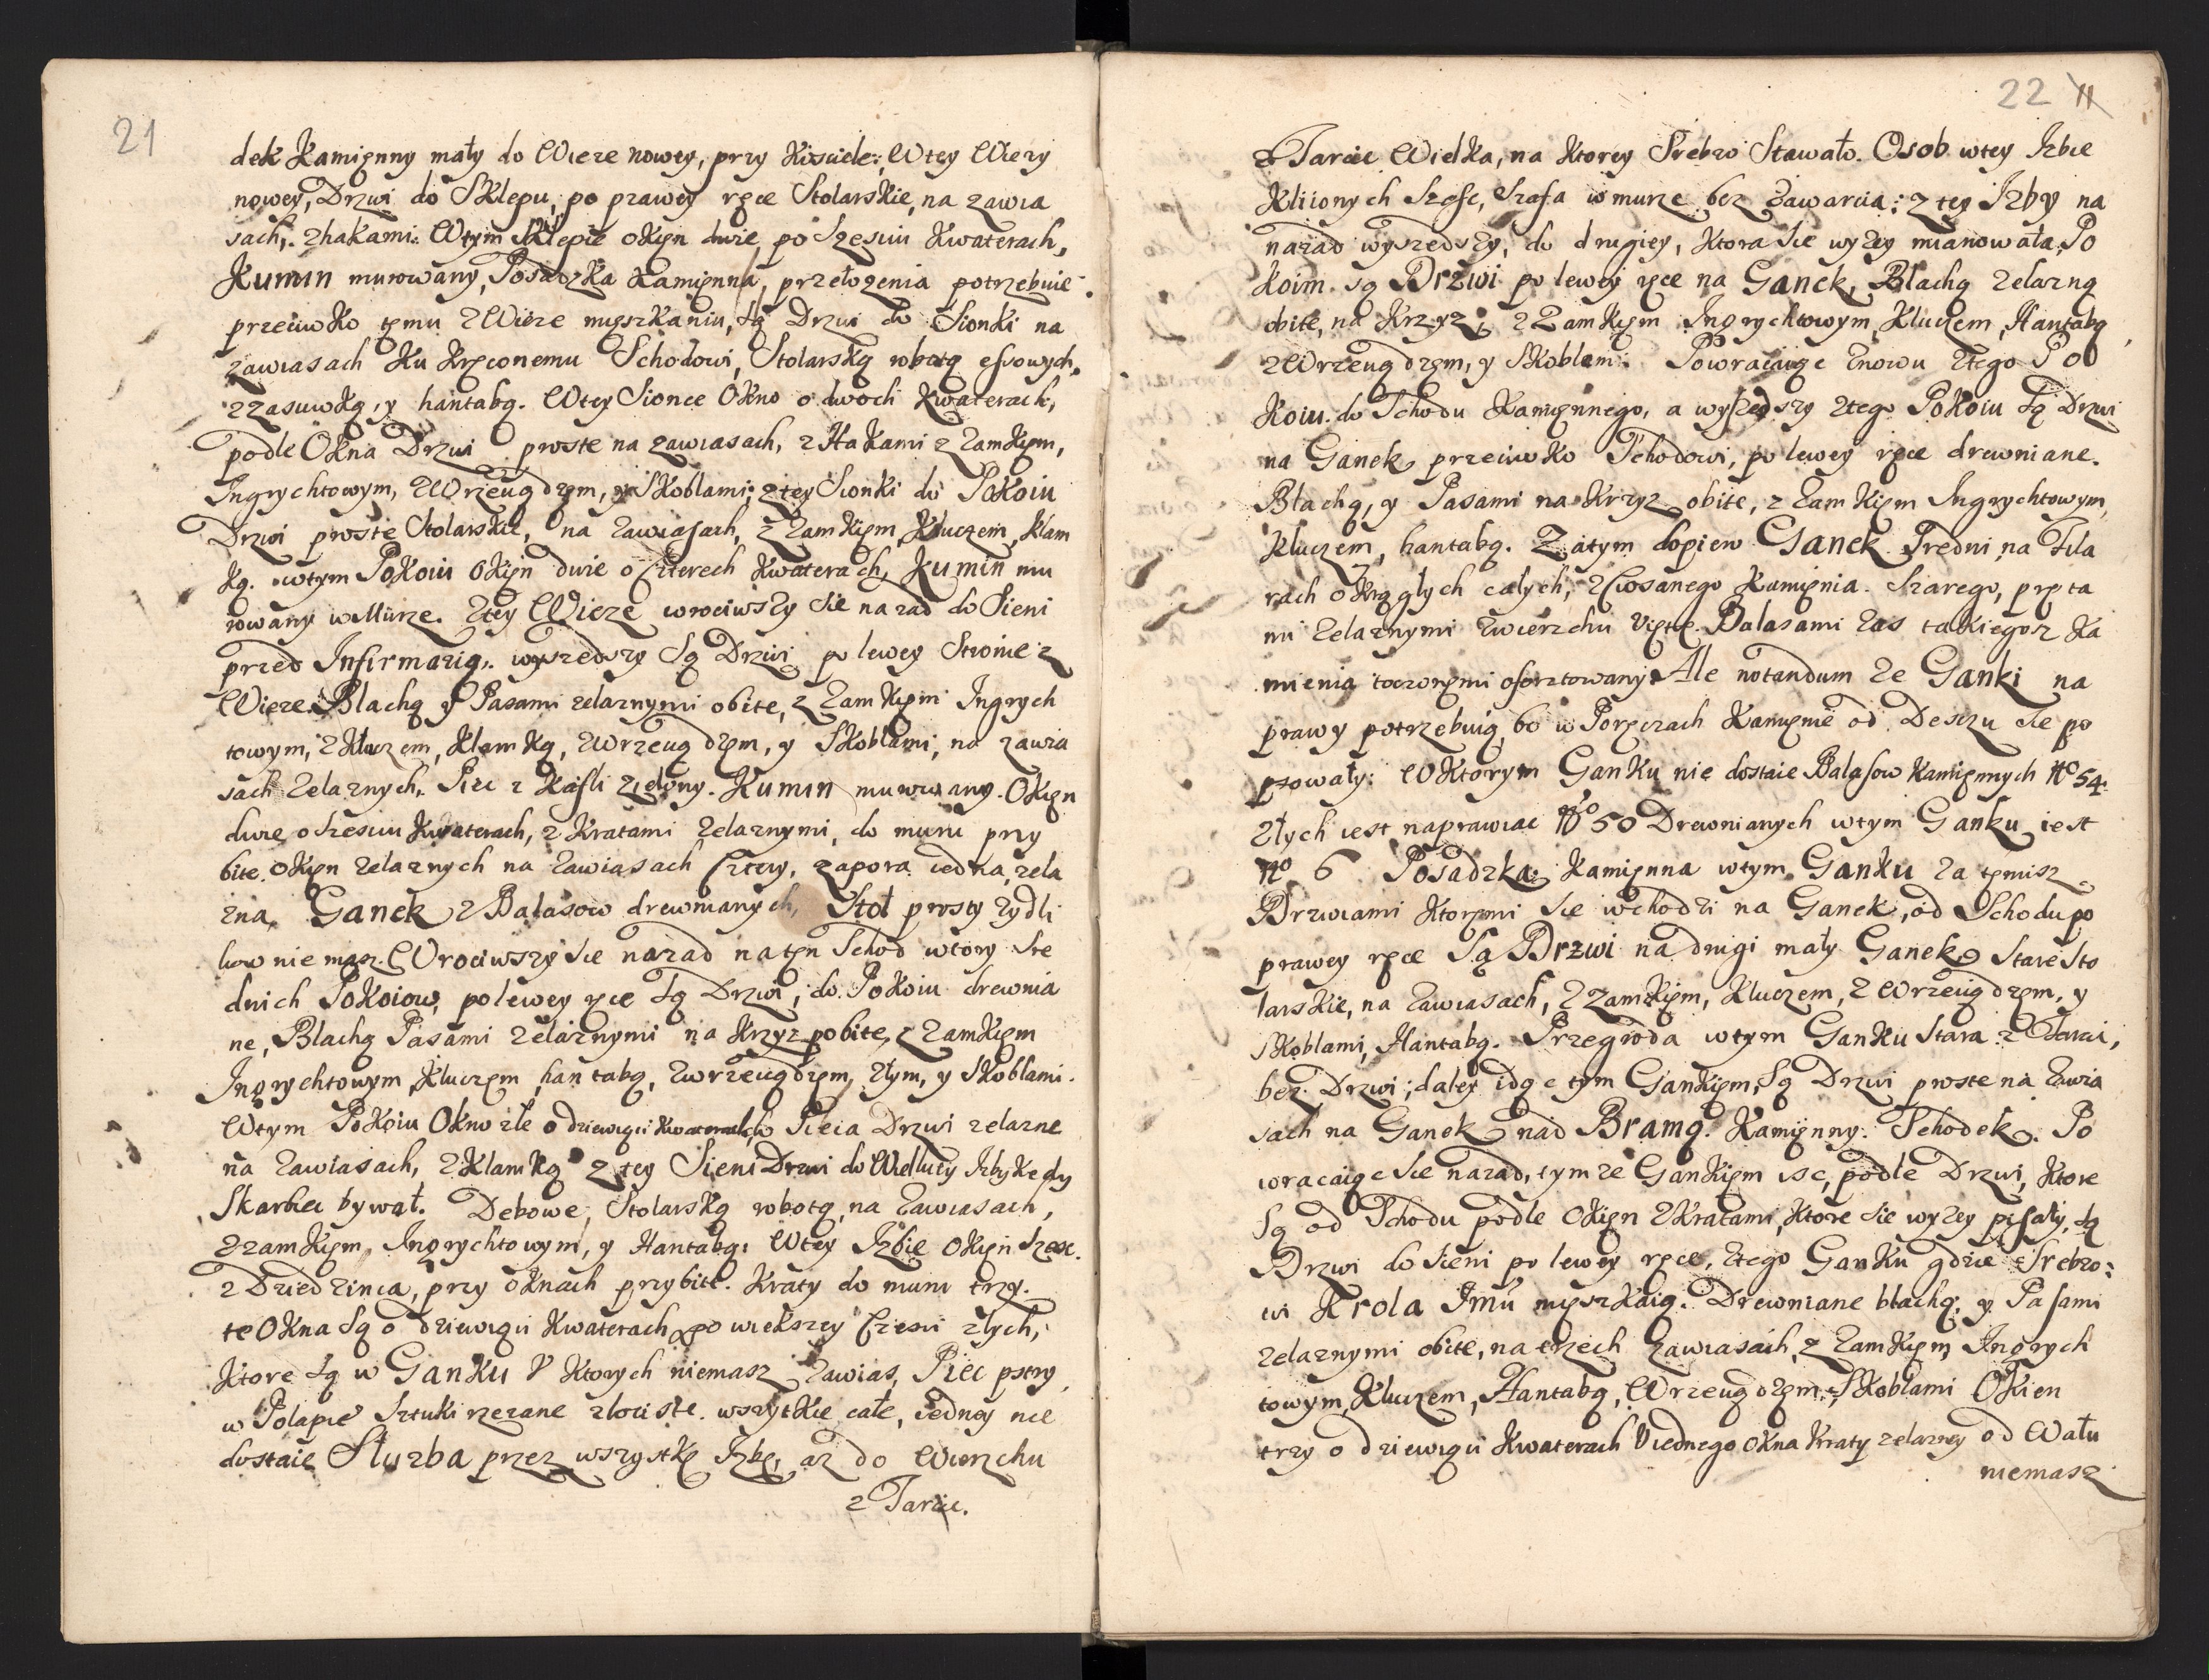 21
dek Kamięnny mały do Wieze nowey, przy Kosciele; Wtey Wiezy
nowey, Drzwi do Sklepu, po prawey ręce Stolarskie, na zawia
sach, zhakami. Wtym Sklepie okien dwie, po Szesciu Kwaterach,
Kumin murowany, Posadzka Kamięnna, przełozenia potrzebuie.
przeciwko temu zWieze mięszkaniu, są Drzwi do Sionki na
zawiasach Ku Kręconemu Schodowi, Stolarską robotą essowych,
zzasuwką, y hantabą. Wtey Sionce Okno o dwoch Kwaterach,
podle Okna Drzwi proste na zawiasach, z Hakami z Zamkięm,
Ingrychtowym, zWrzeugdzęm, y Skoblami; ztey Sionki do Pokoiu
Drzwi proste Stolarskie, na zawiasach, z Zamkięm, Kluczem, Klam
ką. wtym Pokoiu okięn dwie o czterech Kwaterach, Kumin mu
rowany w Murze. Ztey Wieze wrociwszy sie nazad do Sieni
przed Infirmarią, wyszedszy Są Drzwi po lewey Stronie z
Wieze Blachą y Pasami zelaznymi obite, z Zamkięm Ingrych
towym, z Kluczem, Klamką, zWrzeugdzęm, y Skoblami, na zawia
sach Zelaznych. Piec z Kafli zielony. Kumin murowany. Okięn
dwie o Szesciu Kwaterach, z Kratami Zelaznymi, do muru przy
bite. Okięn zelaznych na Zawiasach cztery, zapora iedna, zela
zna, Ganek z Balasow drewnianych, Stoł prosty zydli
kow nie masz. Wrociwszy sie nazad na tęn Schod wtory Sre
dnich Pokoiow, po lewey ręce są Drzwi, do Pokoiu drewnia
ne, Blachą Pasami Zelaznymi na Krzyz pobite, z Zamkięm
Ingrychtowym, Kluczęm, hantabą, zwrzeugdzęm, złym, y Skoblami.
Wtym Pokoiu Okno złe o dziewiąciu Kwaterach, w Pieca Drzwi zelazne
na Zawiasach, z Klamką z tey Sieni Drzwi do Wielkiey Izby Kędy
Skarbiec bywał. Debowe, Stolarską robotą, na Zawiasach,
zzamkięm, Ingrychtowym, y Hantabą: Wtey Izbie okięn Szesc.
z Dziedzinca, przy oknach przybite. Kraty do muru trzy.
te Okna Są o dziewiąciu Kwaterach, po większey częsci złych,
Ktore są w Ganku V Ktorych niemasz Zawias, Piec pstry
w Połapie Sztuki rzezane złociste. wszytkie całe, iedney nie
dostaie Sluzba przez wszystkę Izbę, az do Wierzchu
z Tarcic.
22 11
z Tarcic Wielka, na Ktorey Srebro Stawało. Osob wtey Izbie
Kliionych Szesc, Szafa w murze bez Zawarcia; z tey Izby na
nazad wyszedszy, do drugiey, Ktora sie wyzey mianowała, Po
Koim. są Drzwi po lewey ręce na Ganek, Blachą zelazną
obite, na Krzyz, z Zamkięm Ingrychtowym, Kluczem, Hantabą,
zWrzeugdzęm, y Skoblem. Powracaiąc znowu Ztego Po
Koiu do Schodu Kamięnnego, a wyszedszy Ztego Pokoiu są Drzwi
na Ganek, przeciwko Schodowi, po lewey ręce drewniane.
Błachą, y Pasami na Krzyz obite, z Zamkięm Ingrychtowym,
Kluczem, hantabą. Zatym dopiero Ganek Predni, na Fila
rach okrągłych całych, zCiosanego Kamięnia Szarego, pręta
mi Zelaznymi zwierzchu Vięte. Balasami zas takiegosz Ka
mienia toczonymi ofortowany. Ale notandum ze Ganki na
prawy potrzebuią, bo w Poręczach Kamięnie od Desczu sie po
psowały: Wktorym Ganku nie dostaie Balasow Kamięnnych No 54.
Złych iest naprawiac No 50 Drewnianych wtym Ganku iest
No 6 Posadzka Kamięnna wtym Ganku za tęmisz
Drzwiami Ktoręmi sie wchodzi na Ganek, od Schodu po
prawey ręce Są Drzwi na drugi mały Ganek Stare Sto
larskie, na Zawiasach, z Zamkięm, Kluczem, z Wrzeugdzęm, y
Skoblami, Hantabą. Przegroda wtym Ganku Stara z Tarcic,
bez Drzwi; daley idąc tym Gankięm, Są Drzwi proste na Zawia
sach na Ganek nad Bramą. Kamięnny Schodek. Po
wracaiąc sie nazad, tymze Gankięm isc, podle Drzwi, Ktore
Są od Schodu podle Okięn z Kratami, Ktore sie wyzey pisały, są
Drzwi do Sieni po lewey ręce, Ztego Ganku gdzie Srebro:
wi Krola Jmci mięszkaią. Drewniane błachą, y Pasami
zelaznymi obite, na trzech Zawiasach, z Zamkięm, Ingrych
towym, Kluczem, Hantabą, Wrzeugdzęm, Skoblami Okien
trzy o dziewiąciu Kwaterach V iednego okna Kraty zelazney od Wału
niemasz